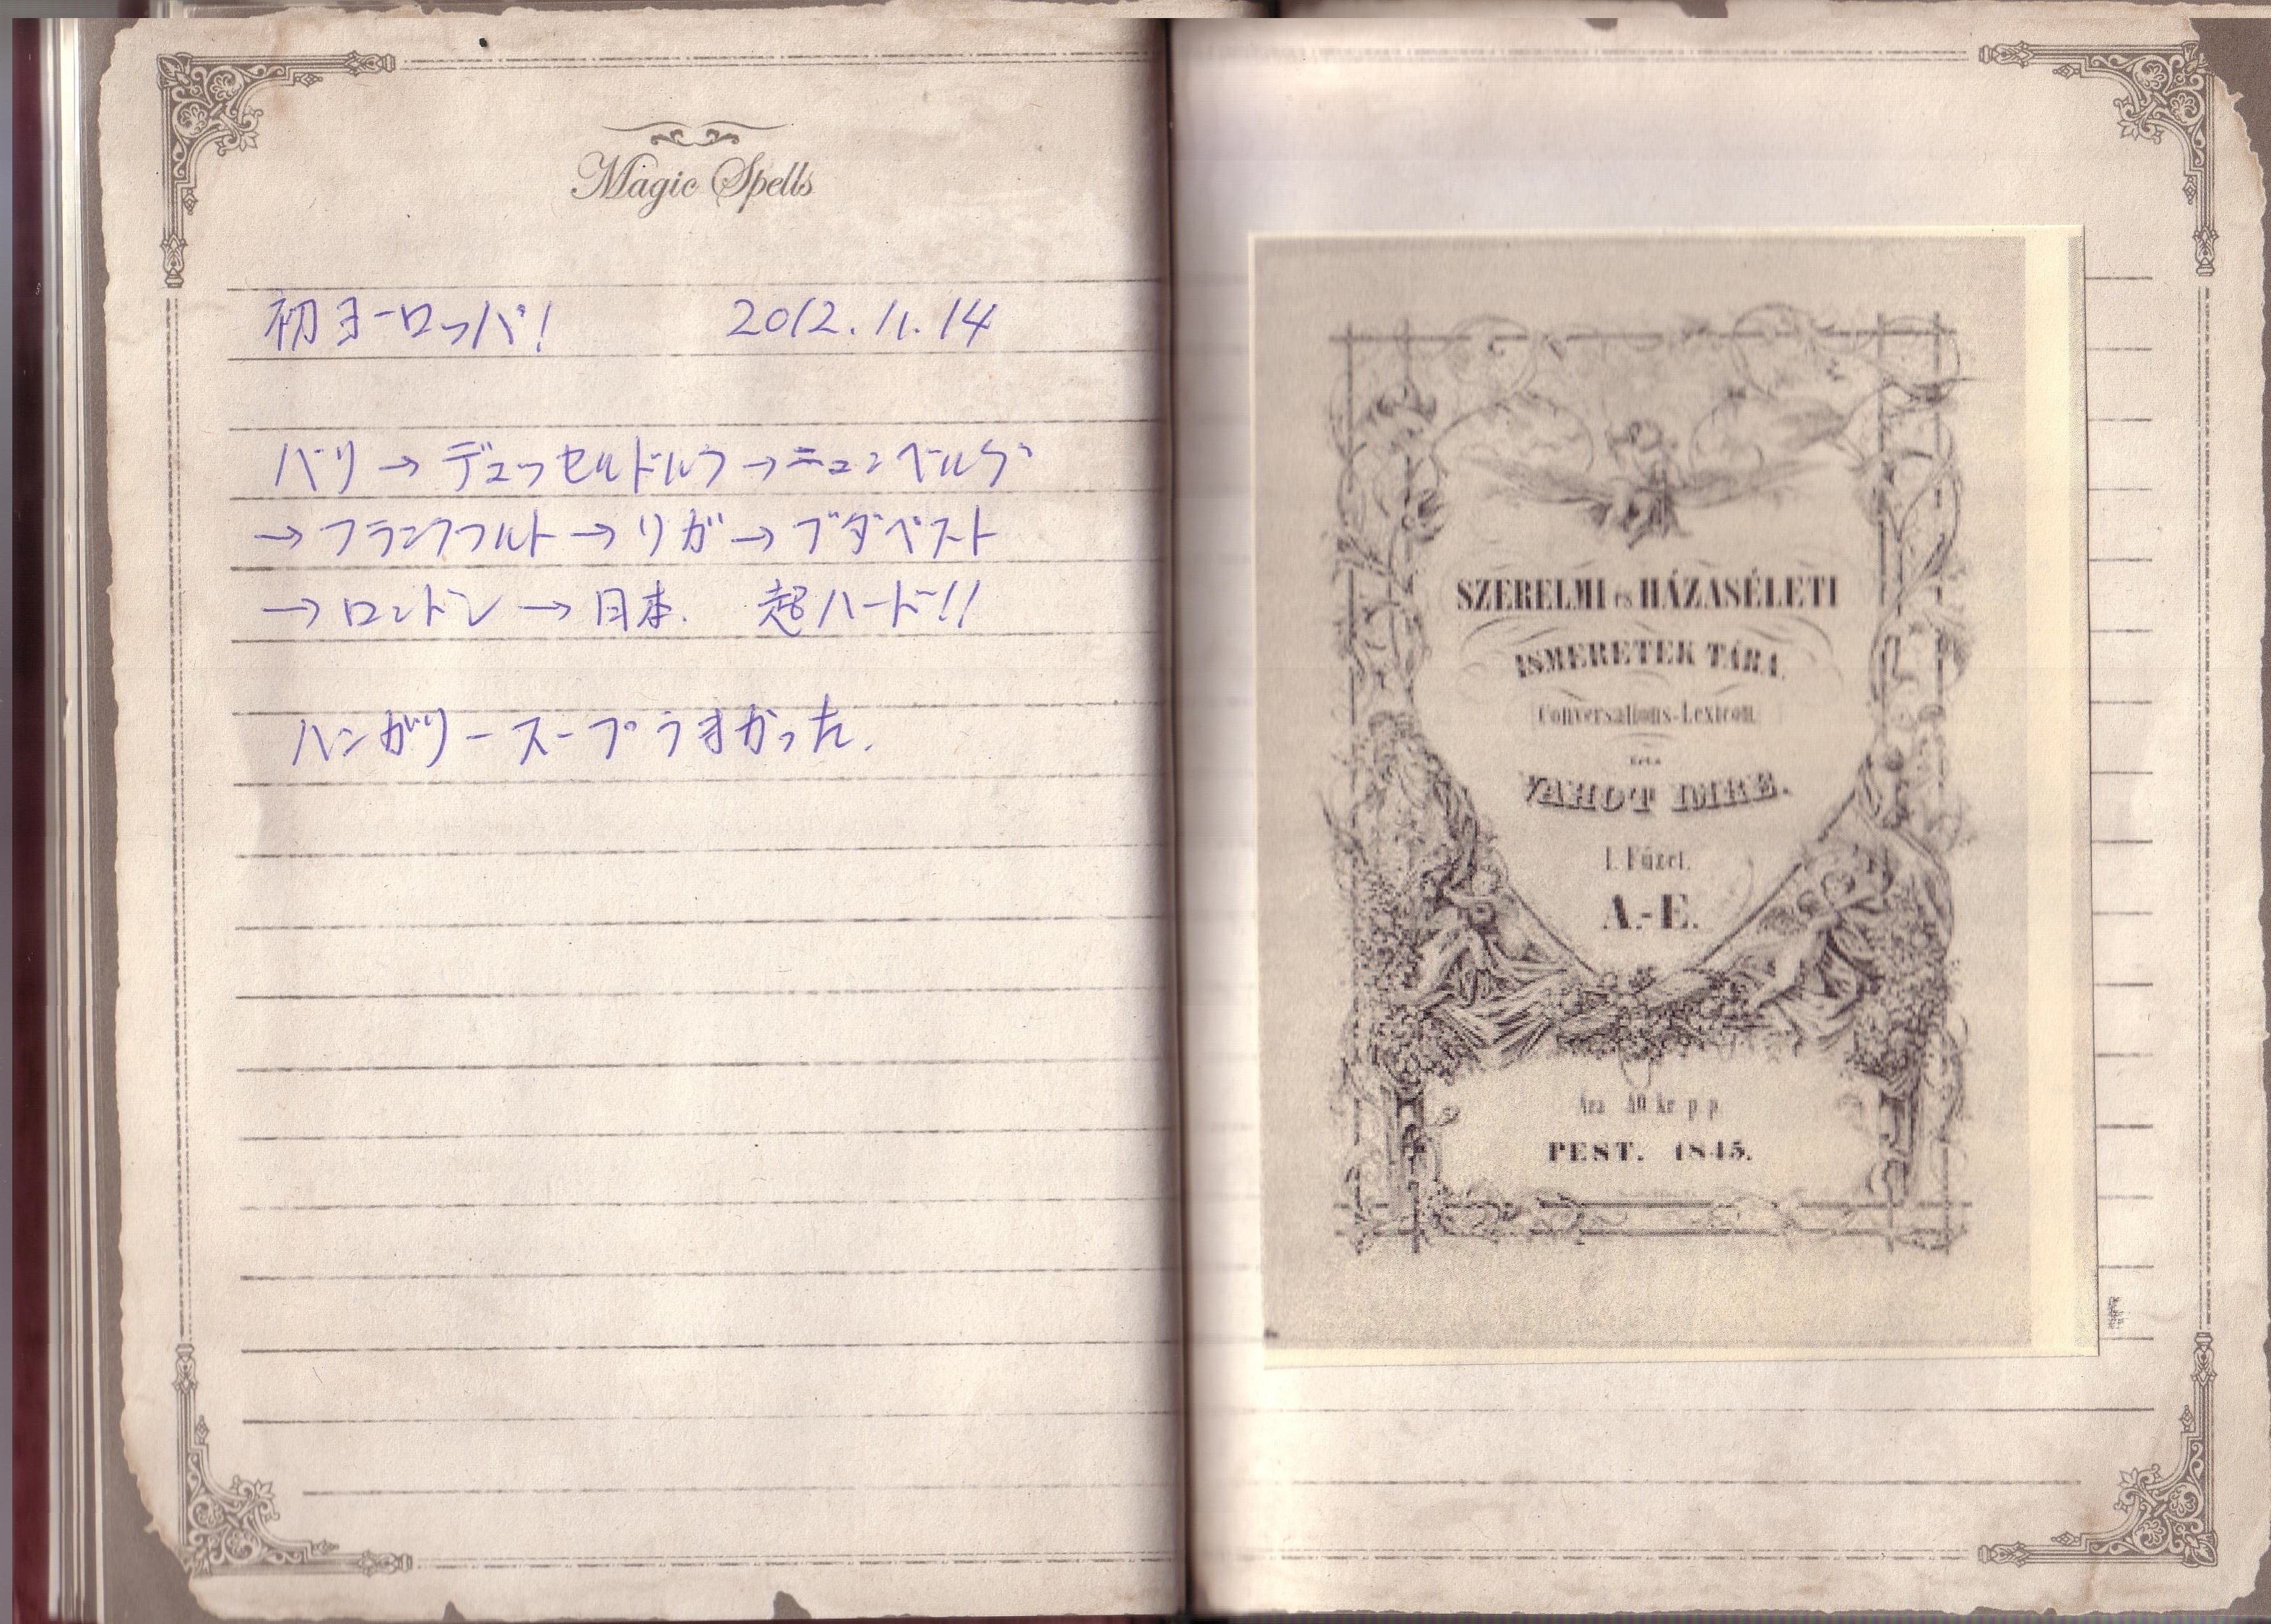 Magic Spells
初ヨーロッパ! 2012.11.14
パリ→デュッセルドルフ→ニュンベルグ
→フランクフルト→リガ→ブダペスト
→ロンドン→日本. 超ハード!!
ハンガリースープうまかった.
SZERELMI és HÁZASÉLETI
ISMERETEK TÁRA.
Conversations-Lexicon
VAHOT IMRE.
I. Füzet.
A.-E.
Ára kr p.p.
PEST. 1845.